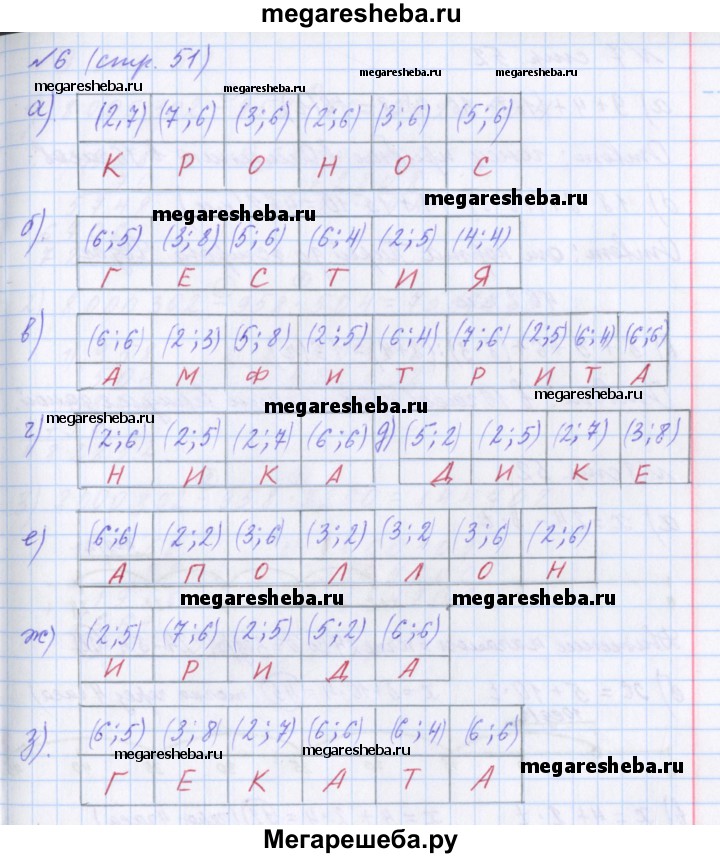 megaresheba.ru
№6 (стр. 51)
megaresheba.ru megaresheba.ru megaresheba.ru
а). (2,7) (7;6) (3;6) (2;6) (3;6) (5;6)
К Р О Н О С
megaresheba.ru megaresheba.ru
б). (6;5) (3;8) (5;6) (6;4) (2;5) (4;4)
Г Е С Т И Я
в) (6;6) (2;3) (5;8) (2;5) (6;4) (7;6) (2;5) (6;4) (6;6)
А М Ф И Т Р И Т А
megaresheba.ru megaresheba.ru megaresheba.ru
г) (2;6) (2;5) (2;7) (6;6) д) (5;2) (2;5) (2;7) (3;8)
Н И К А Д И К Е
е) (6;6) (2;2) (3;6) (3;2) (3;2) (3;6) (2;6)
А П О Л Л О Н
megaresheba.ru megaresheba.ru
ж) (2;5) (7;6) (2;5) (5;2) (6;6)
И Р И Д А
з). (6;5) (3;8) (2;7) (6;6) (6;4) (6;6)
megaresheba.ru megaresheba.ru megaresheba.ru
Г Е К А Т А
Мегарешеба.ру